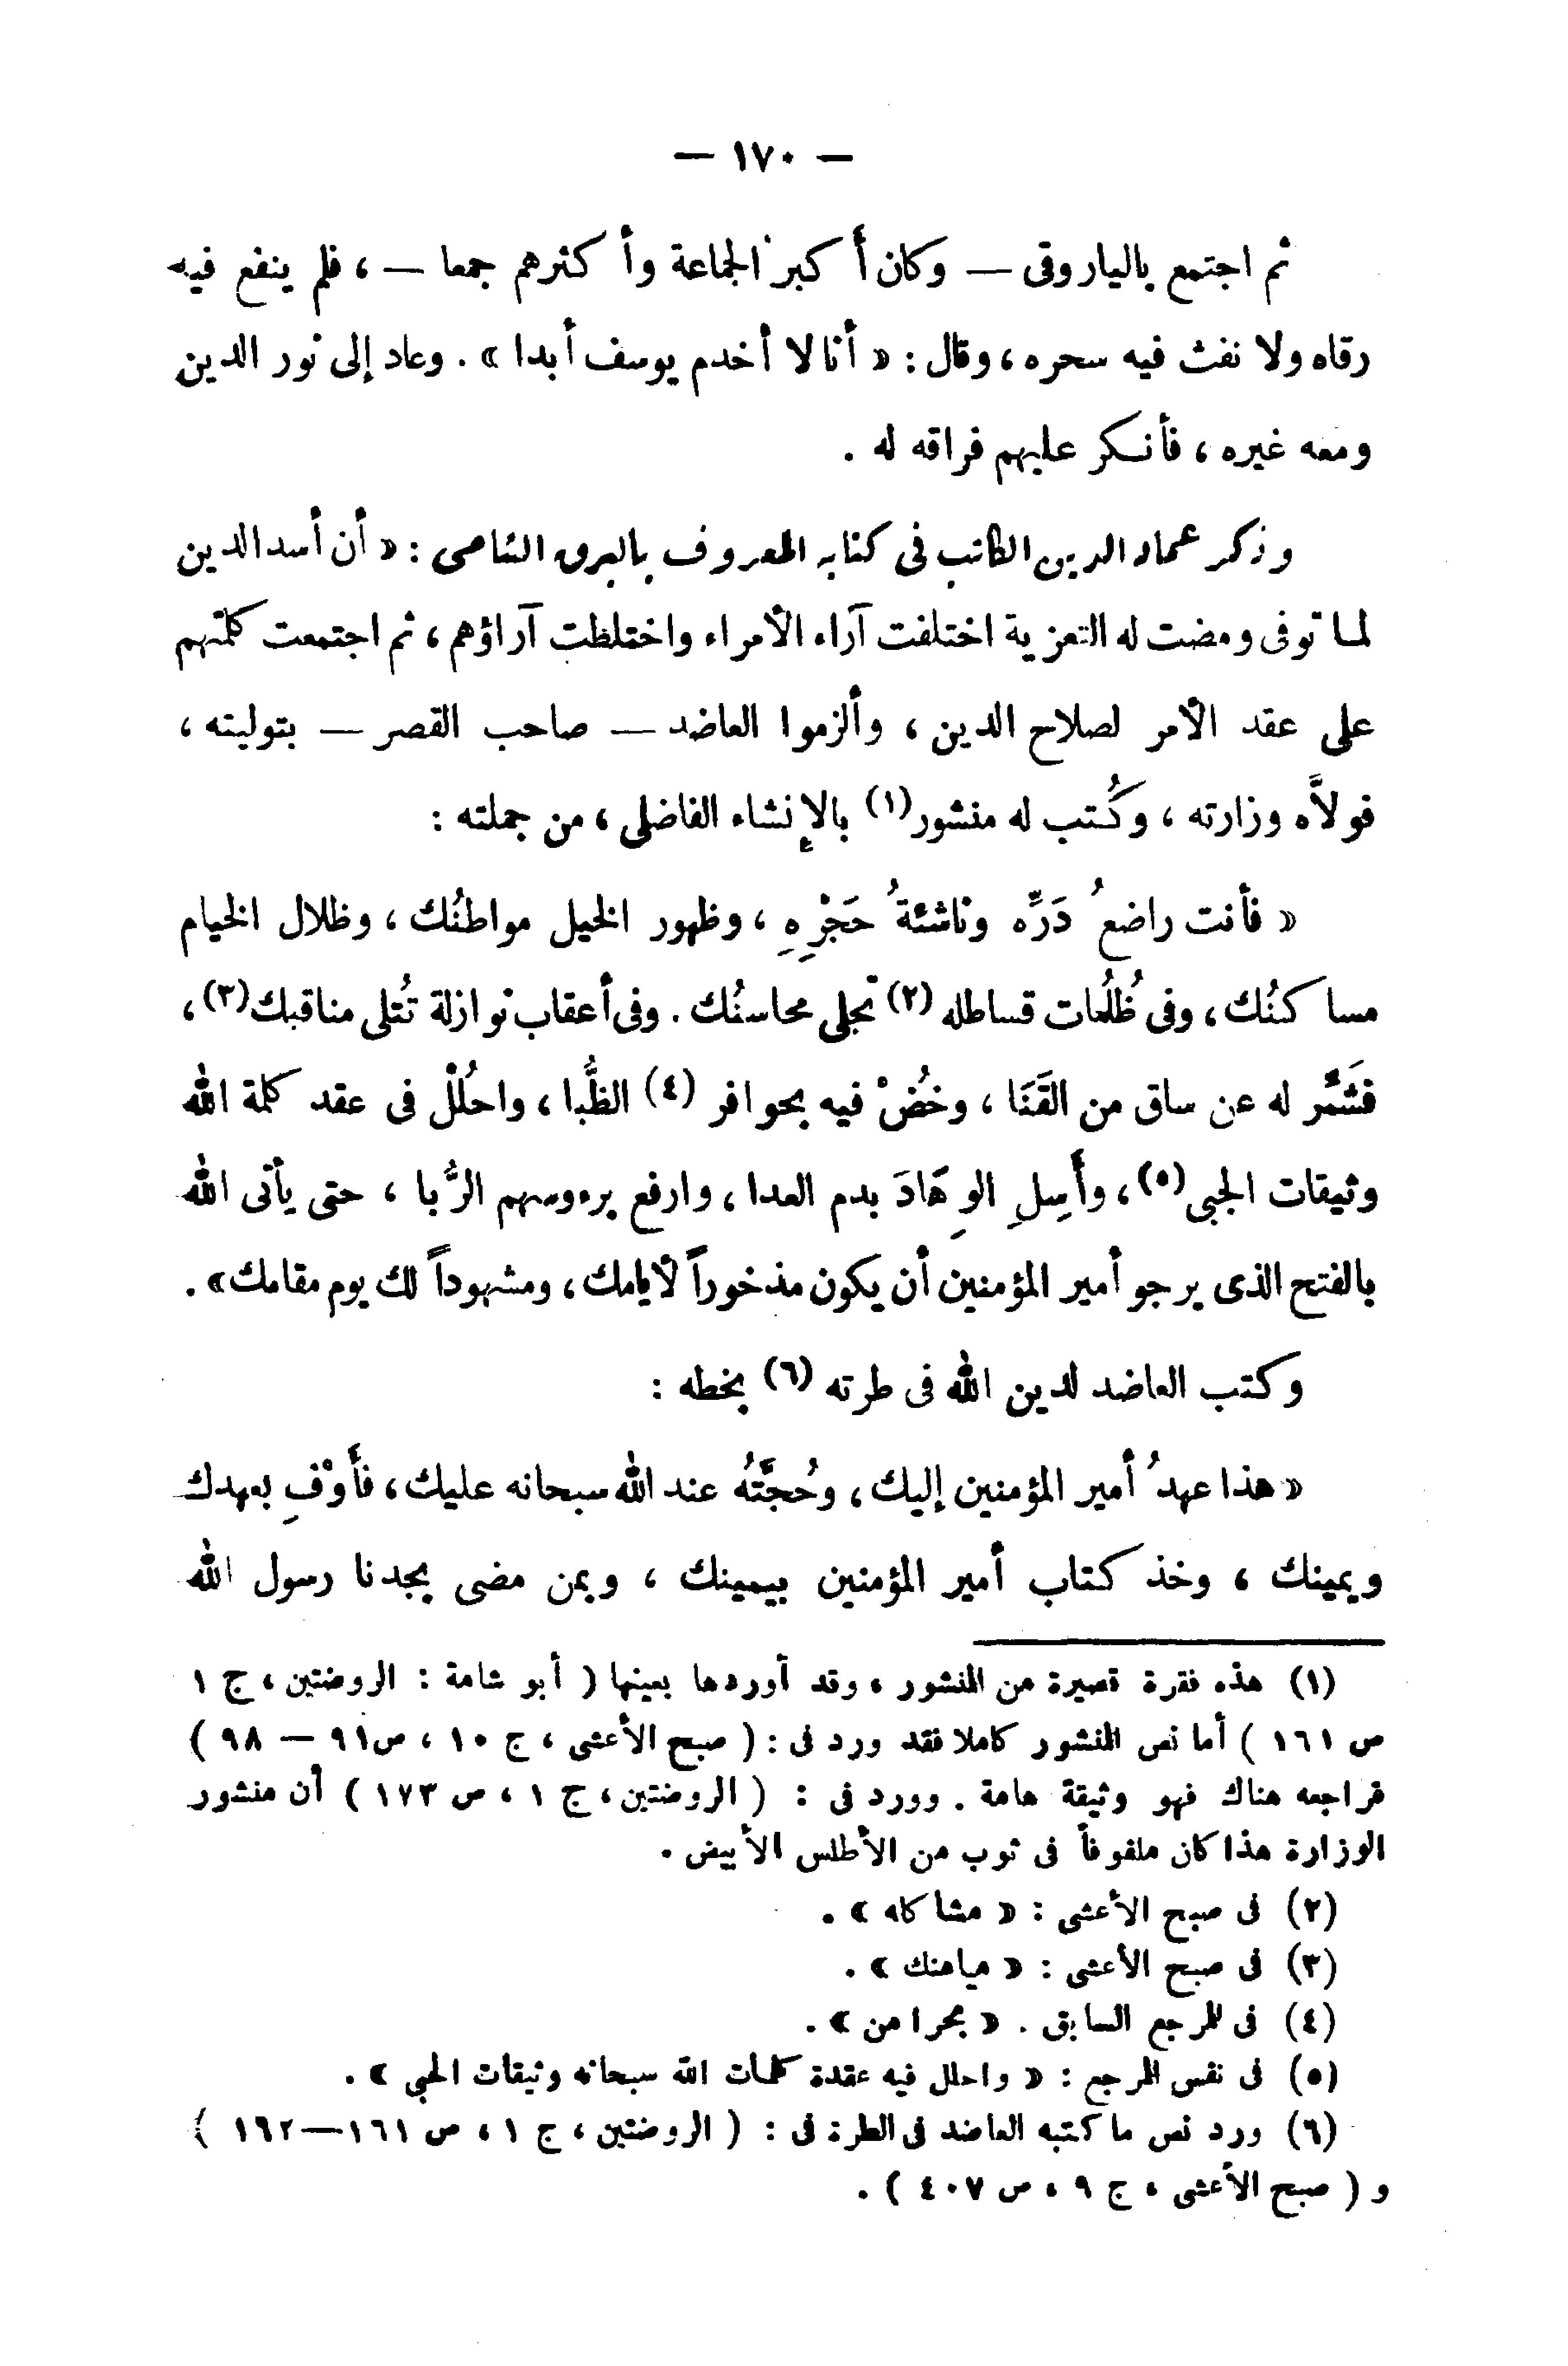 — ١٧٠ —
ثم اجتمع بالياروقى — وكان أكبر الجماعة وأكثرهم جمعا — ، فلم ينفع فيه
رقاه ولا نفث فيه سحره ، وقال : « أنا لا أخدم يوسف أبدا » . وعاد إلى نور الدين
ومعه غيره ، فأنكر عليهم فراقه له .
وذكر عماد الدين الكاتب فى كتابه المعروف بالبرق الشامى : « أن أسد الدين
لما توفى ومضت له التعزية اختلفت آراء الأمراء واختلطت آراؤهم ، ثم اجتمعت كلمتهم
على عقد الأمر لصلاح الدين ، وألزموا العاضد — صاحب القصر — بتوليته ،
فولاَّه وزارته ، وكُتب له منشور (١) بالإنشاء الفاضلى ، من جملته :
« فأنت راضعُ دَرِّه وناشئةُ حَجْرِهِ ، وظهور الخيل مواطنُك ، وظلال الخيام
مساكنُك ، وفى ظُلُمات قساطله (٢) تجلى محاسنُك . وفى أعقاب نوازلة تُتلى مناقبك (٣) ،
فَشَمَّر له عن ساق من القَنَا ، وخُضْ فيه بحوافر (٤) الظُّبا ، واحُلُلْ فى عقد كلمة الله
وثيقات الجبى (٥) ، وأَسِلِ الوِهَادَ بدم العدا ، وارفع برءوسهم الرُّبا ، حتى يأتى الله
بالفتح الذى يرجو أمير المؤمنين أن يكون مذخوراً لأيامك ، ومشهوداً لك يوم مقامك » .
وكتب العاضد لدين الله فى طرته (٦) بخطه :
« هذا عهدُ أمير المؤمنين إليك ، وحُجَّتُهُ عند الله سبحانه عليك ، فأَوْفِ بعهدك
ويمينك ، وخذ كتاب أمير المؤمنين بيمينك ، وبمن مضى بجدنا رسول الله
(١) هذه فقرة قصيرة من المنشور ، وقد أوردها بعينها ( أبو شامة : الروضتين ، ج ١
ص ١٦١ ) أما نص المنشور كاملا فقد ورد فى : ( صبح الأعشى ، ج ١٠ ، ص٩١ — ٩٨ )
فراجعه هناك فهو وثيقة هامة . وورد فى : ( الروضتين ، ج ١ ، ص ١٧٣ ) أن منشور
الوزارة هذا كان ملفوفاً فى ثوب من الأطلس الأبيض .
(٢) فى صبح الأعشى : « مشاكله » .
(٣) فى صبح الأعشى : « ميامنك » .
(٤) فى المرجع السابق . « بحرا من » .
(٥) فى نفس المرجع : « واحلل فيه عقدة كلمات الله سبحانه وثيقات الحبى » .
(٦) ورد نص ما كتبه العاضد فى الطرة فى : ( الروضتين ، ج ١ ، ص ١٦١—١٦٢ )
و ( صبح الأعشى ، ج ٩ ، ص ٤٠٧ ) .